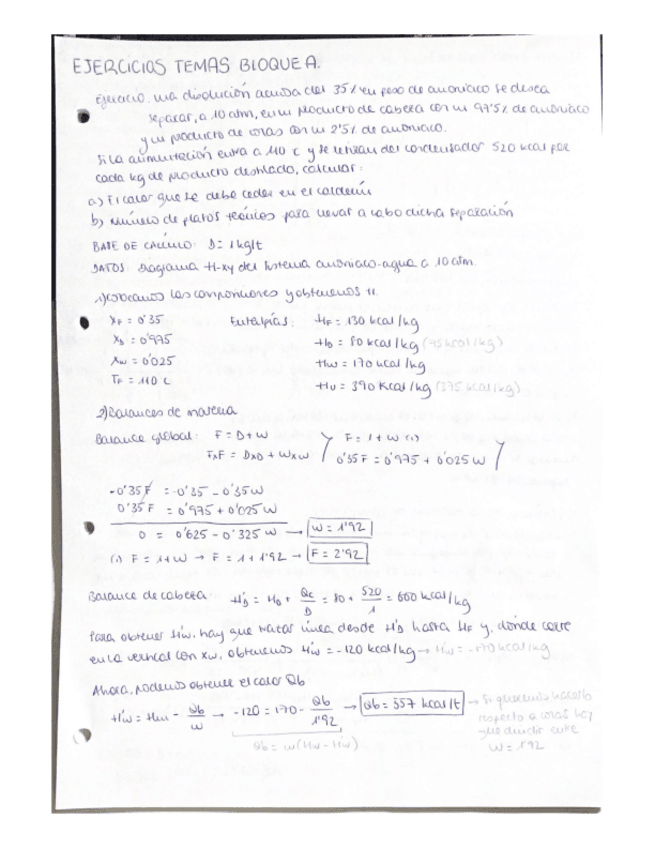 EJERCICIOS TEMAS BLOQUE A.
Ejercicio. una disolución acuosa del 35% en peso de amoniaco se desea
separar, a 10 atm, en un producto de cabeza con un 97'5% de amoniaco
y un producto de colas con un 2'5% de amoniaco.
Si la alimentación entra a 110 C y se retiran del condensador 520 kcal por
cada kg de producto destilado, calcular:
a) El calor que se debe ceder en el calderín
b) Número de platos teóricos para llevar a cabo dicha separación
BASE DE CÁLCULO: D = 1 kg/t
DATOS: Diagrama H-xy del sistema amoniaco-agua a 10 atm.
1) Colocamos las composiciones y obtenemos H.
XF = 0'35 Entalpías: HF = 130 kcal/kg
XD = 0'975 HD = 80 kcal/kg (75 kcal/kg)
XW = 0'025 HW = 170 kcal/kg
TF = 110 C HV = 390 kcal/kg (375 kcal/kg)
2) Balances de materia
Balance global: F = D + W F = 1 + W (1)
F·XF = D·XD + W·XW 0'35F = 0'975 + 0'025W
-0'35F = -0'35 - 0'35W
0'35F = 0'975 + 0'025W
0 = 0'625 - 0'325W → W = 1'92
(1) F = 1 + W → F = 1 + 1'92 → F = 2'92
Balance de cabeza: H'D = HD + Qc/D = 80 + 520/1 = 600 kcal/kg
Para obtener H'W, hay que trazar línea desde H'D hasta HF y, dónde corte
en la vertical con XW, obtenemos H'W = -120 kcal/kg → H'W = -170 kcal/kg
Ahora, podemos obtener el calor Qb:
H'W = HW - Qb/W → -120 = 170 - Qb/1'92 → Qb = 557 kcal/t → Si queremos hacerlo
respecto a colas hay
que dividir entre
W = 1'92
Qb = W (HW - H'W)